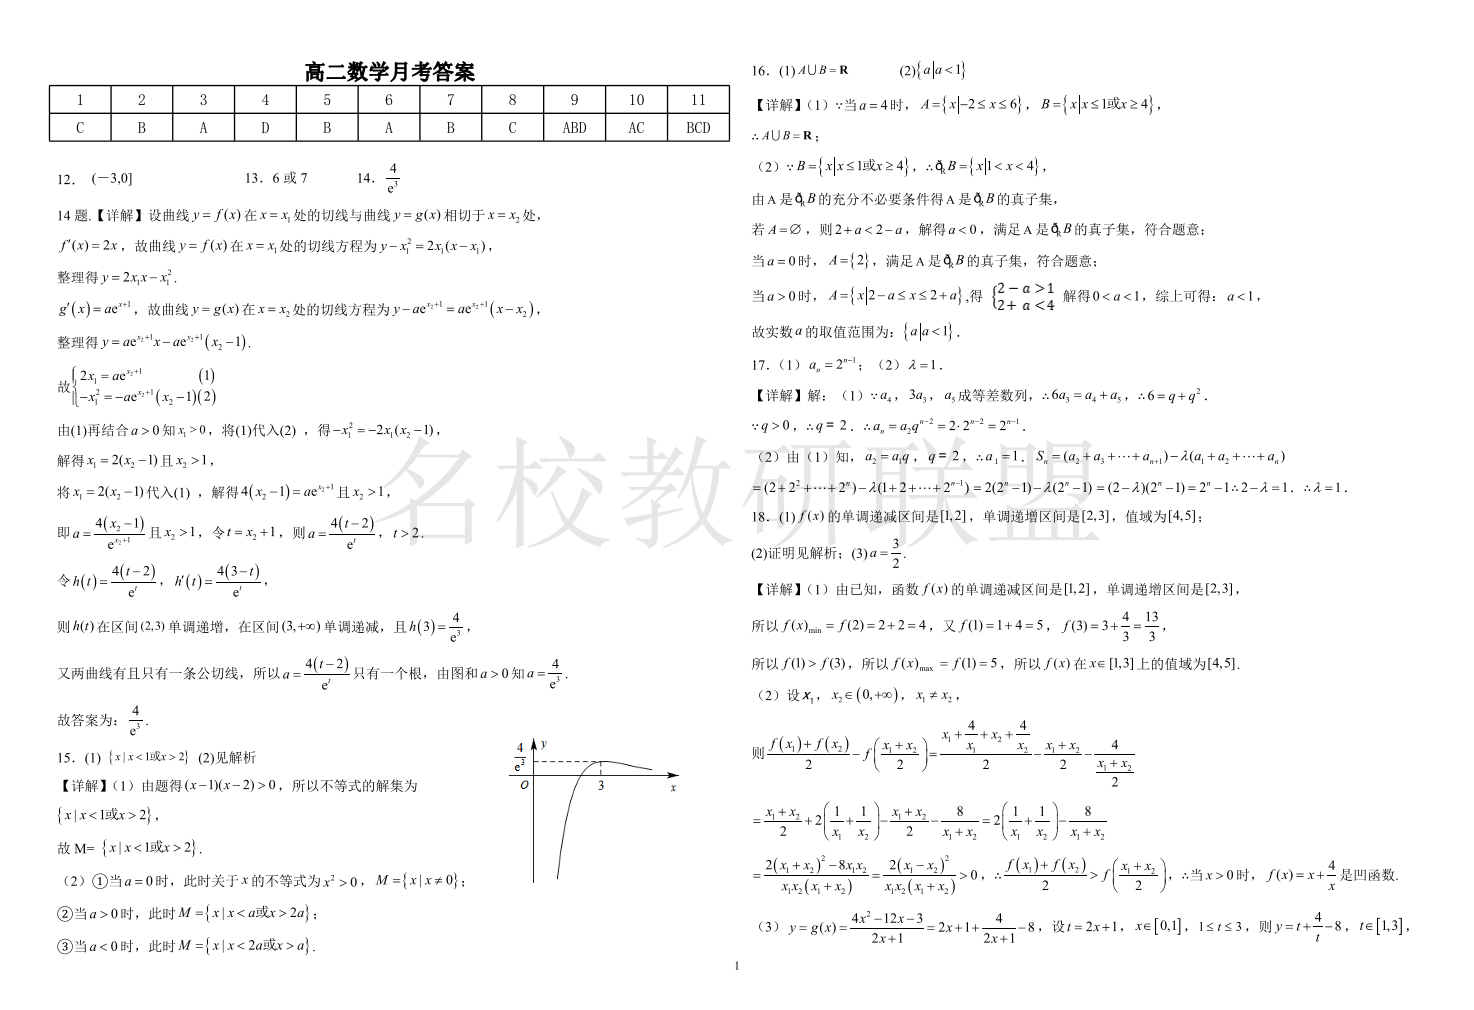 高二数学月考答案
1 2 3 4 5 6 7 8 9 10 11
C B A D B A B C ABD AC BCD
12． (－3,0] 13．6 或 7 14． 4/e³
14 题.【详解】设曲线 y = f(x) 在 x = x₁ 处的切线与曲线 y = g(x) 相切于 x = x₂ 处，
f′(x) = 2x，故曲线 y = f(x) 在 x = x₁ 处的切线方程为 y − x₁² = 2x₁(x − x₁)，
整理得 y = 2x₁x − x₁²．
g′(x) = ae^(x+1)，故曲线 y = g(x) 在 x = x₂ 处的切线方程为 y − ae^(x₂+1) = ae^(x₂+1)(x − x₂)，
整理得 y = ae^(x₂+1)x − ae^(x₂+1)(x₂ − 1)．
故{2x₁ = ae^(x₂+1) (1)
−x₁² = −ae^(x₂+1)(x₂ − 1)(2)
由(1)再结合 a > 0 知 x₁ > 0，将(1)代入(2) ，得 −x₁² = −2x₁(x₂ − 1)，
解得 x₁ = 2(x₂ − 1) 且 x₂ > 1，
将 x₁ = 2(x₂ − 1) 代入(1) ，解得 4(x₂ − 1) = ae^(x₂+1) 且 x₂ > 1，
即 a = 4(x₂ − 1)/e^(x₂+1) 且 x₂ > 1，令 t = x₂ + 1，则 a = 4(t − 2)/e^t，t > 2．
令 h(t) = 4(t − 2)/e^t，h′(t) = 4(3 − t)/e^t，
则 h(t) 在区间 (2,3) 单调递增，在区间 (3,+∞) 单调递减，且 h(3) = 4/e³，
又两曲线有且只有一条公切线，所以 a = 4(t − 2)/e^t 只有一个根，由图和 a > 0 知 a = 4/e³．
故答案为： 4/e³．
15．(1) {x | x < 1或x > 2} (2)见解析
【详解】（1）由题得 (x − 1)(x − 2) > 0，所以不等式的解集为
{x | x < 1或x > 2}，
故 M= {x | x < 1或x > 2}．
（2）①当 a = 0 时，此时关于 x 的不等式为 x² > 0，M = {x | x ≠ 0}；
②当 a > 0 时，此时 M = {x | x < a或x > 2a}；
③当 a < 0 时，此时 M = {x | x < 2a或x > a}．
4/e³ y
O 3 x
16．(1) A∪B = R (2){a|a < 1}
【详解】（1）∵当 a = 4 时，A = {x|−2 ≤ x ≤ 6}，B = {x|x ≤ 1或x ≥ 4}，
∴A∪B = R；
（2）∵B = {x|x ≤ 1或x ≥ 4}，∴ðᵣB = {x|1 < x < 4}，
由 A 是 ðᵣB 的充分不必要条件得 A 是 ðᵣB 的真子集，
若 A = ∅，则 2 + a < 2 − a，解得 a < 0，满足 A 是 ðᵣB 的真子集，符合题意；
当 a = 0 时，A = {2}，满足 A 是 ðᵣB 的真子集，符合题意；
当 a > 0 时，A = {x|2 − a ≤ x ≤ 2 + a},得 {2 − a > 1
2 + a < 4 解得 0 < a < 1，综上可得：a < 1，
故实数 a 的取值范围为：{a|a < 1}．
17．（1）aₙ = 2^(n−1)；（2）λ = 1．
【详解】解：（1）∵a₄，3a₃，a₅ 成等差数列，∴6a₃ = a₄ + a₅，∴6 = q + q²．
∵q > 0，∴q = 2．∴aₙ = a₂q^(n−2) = 2·2^(n−2) = 2^(n−1)．
（2）由（1）知，a₂ = a₁q，q = 2，∴a₁ = 1．Sₙ = (a₂ + a₃ + ⋯ + aₙ₊₁) − λ(a₁ + a₂ + ⋯ + aₙ)
= (2 + 2² + ⋯ + 2ⁿ) − λ(1 + 2 + ⋯ + 2^(n−1)) = 2(2ⁿ − 1) − λ(2ⁿ − 1) = (2 − λ)(2ⁿ − 1) = 2ⁿ − 1∴2 − λ = 1．∴λ = 1．
18．(1) f(x) 的单调递减区间是[1,2]，单调递增区间是[2,3]，值域为[4,5]；
(2)证明见解析；(3) a = 3/2．
【详解】（1）由已知，函数 f(x) 的单调递减区间是[1,2]，单调递增区间是[2,3]，
所以 f(x)min = f(2) = 2 + 2 = 4，又 f(1) = 1 + 4 = 5，f(3) = 3 + 4/3 = 13/3，
所以 f(1) > f(3)，所以 f(x)max = f(1) = 5，所以 f(x) 在 x∈[1,3] 上的值域为[4,5]．
（2）设 x₁，x₂∈(0,+∞)，x₁ ≠ x₂，
则 (f(x₁) + f(x₂))/2 − f((x₁ + x₂)/2) = (x₁ + 4/x₁ + x₂ + 4/x₂)/2 − (x₁ + x₂)/2 − 4/((x₁ + x₂)/2)
= (x₁ + x₂)/2 + 2(1/x₁ + 1/x₂) − (x₁ + x₂)/2 − 8/(x₁ + x₂) = 2(1/x₁ + 1/x₂) − 8/(x₁ + x₂)
= (2(x₁ + x₂)² − 8x₁x₂)/(x₁x₂(x₁ + x₂)) = 2(x₁ − x₂)²/(x₁x₂(x₁ + x₂)) > 0，∴(f(x₁) + f(x₂))/2 > f((x₁ + x₂)/2)，∴当 x > 0 时，f(x) = x + 4/x 是凹函数.
（3）y = g(x) = (4x² − 12x − 3)/(2x + 1) = 2x + 1 + 4/(2x + 1) − 8，设 t = 2x + 1，x∈[0,1]，1 ≤ t ≤ 3，则 y = t + 4/t − 8，t∈[1,3]，
名校教研联盟
1